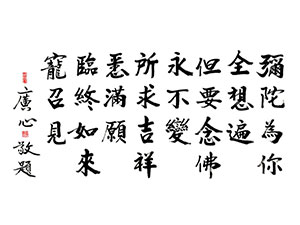 彌陀為你
全想遍
但要念佛
永不變
所求吉祥
悉滿願
臨終如來
寵召見
廣心敬題